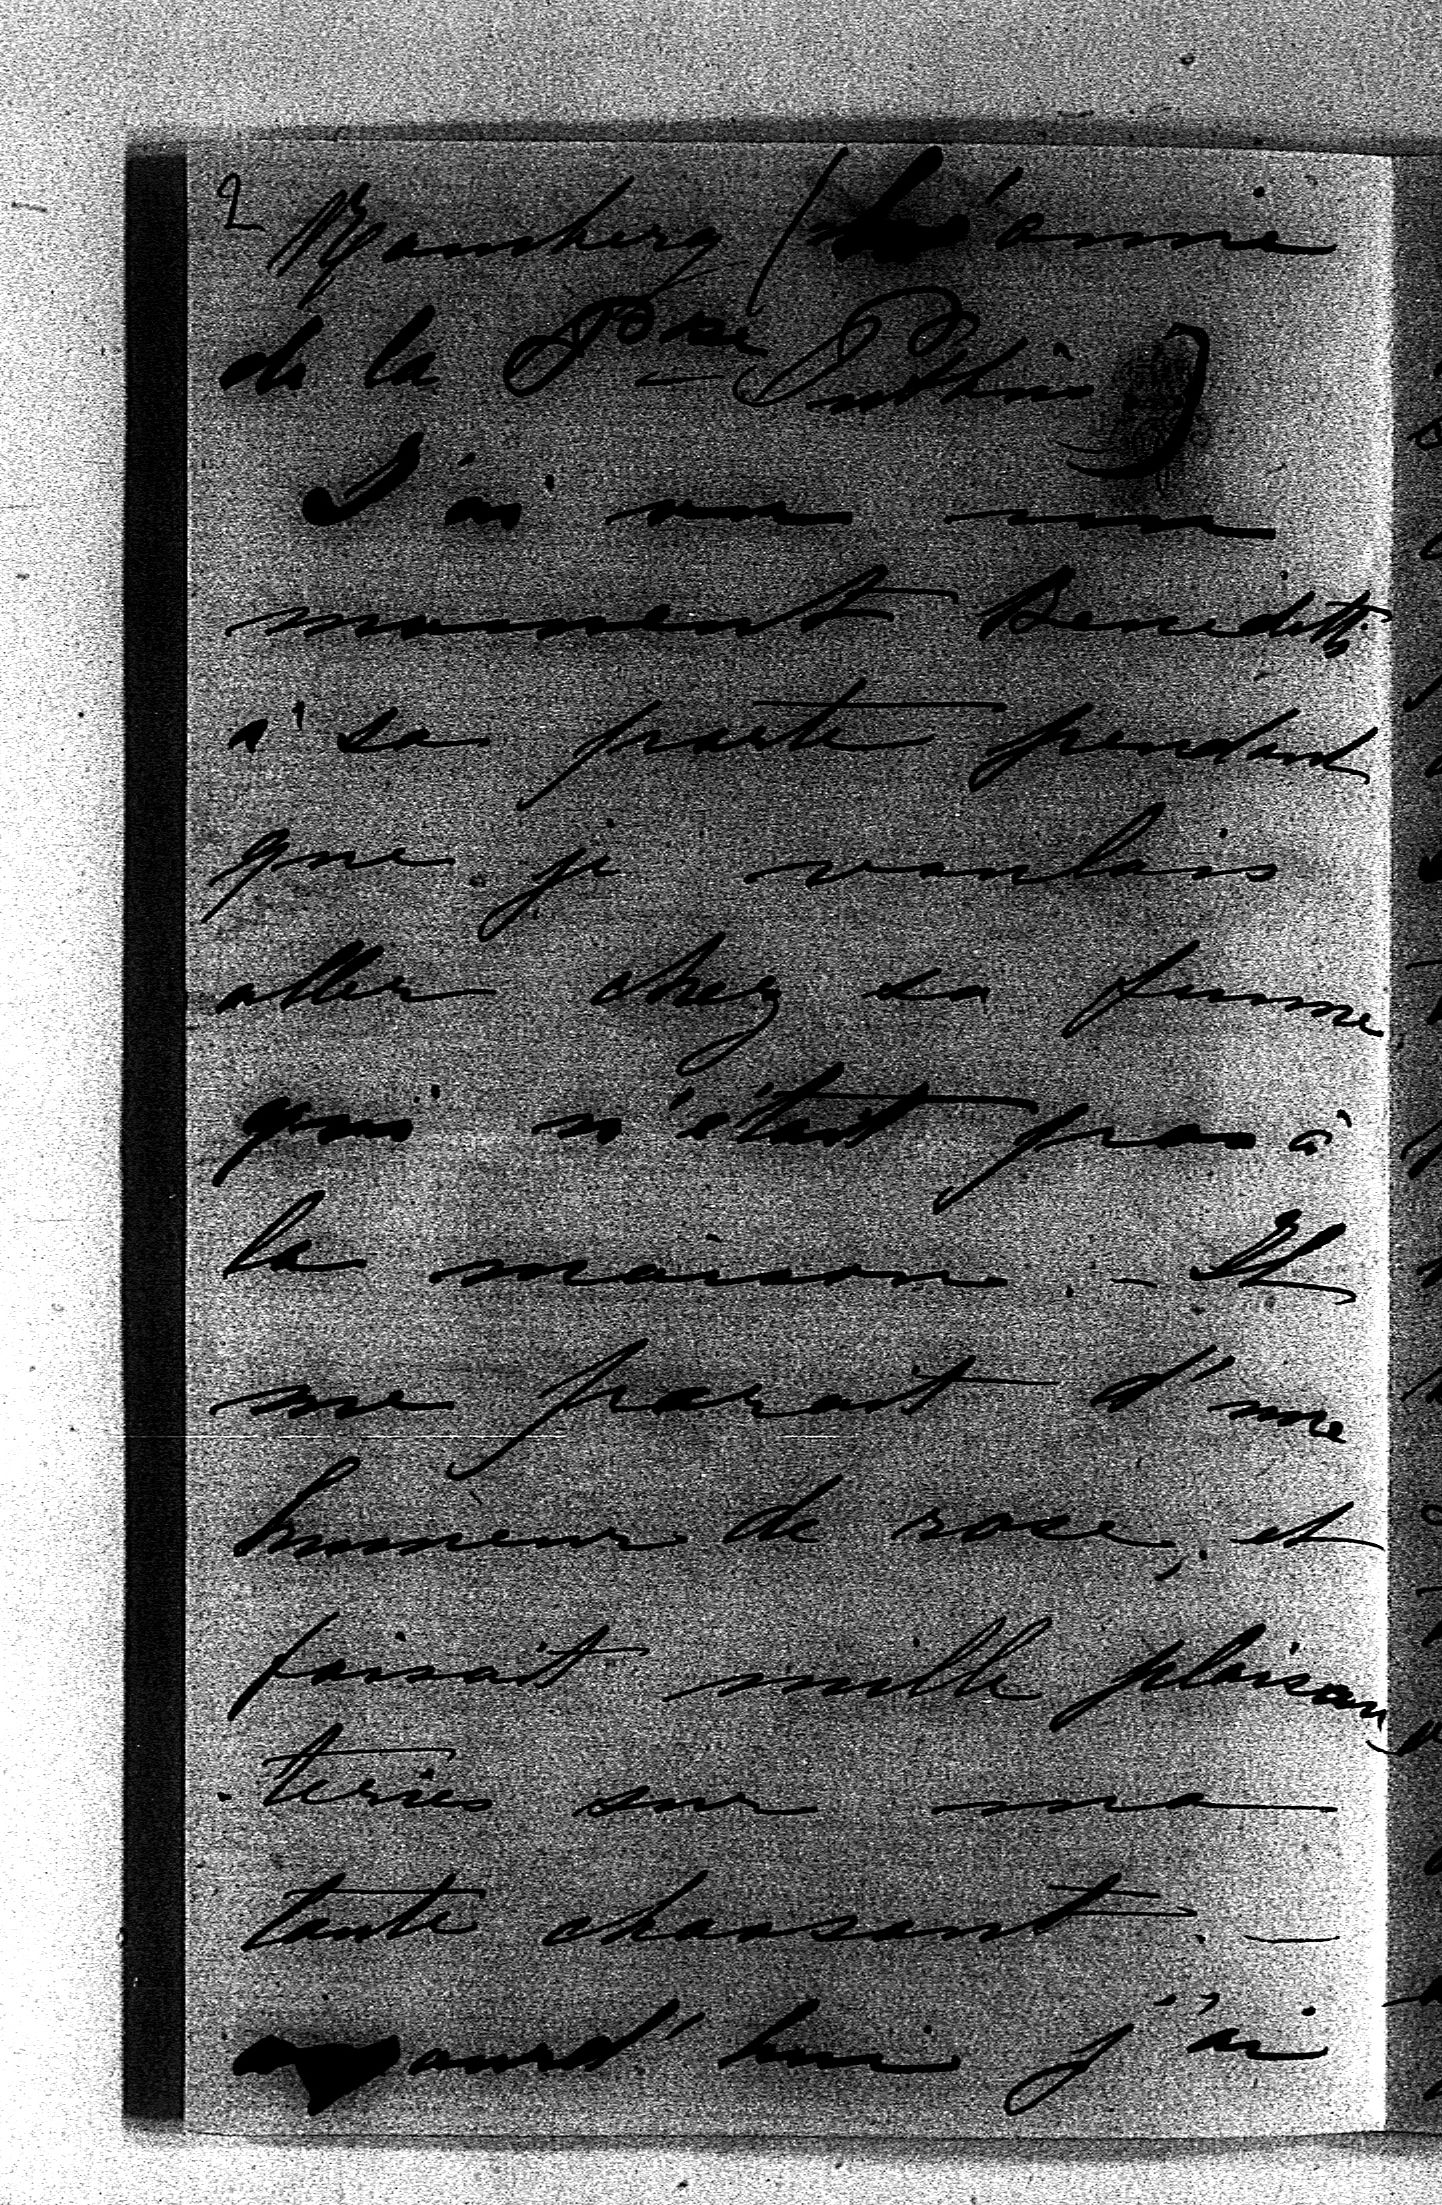 2
de la
J'ai vu un
moment Benedetti
a' sa porte pendant
que je voulais
aller chez sa femme,
qui n'était pas à
la maison. — Il
me parait d'une
humeur de rose, et
faisait mille plaisan
teries sur ma
tante chassant. —
aujourd'hui j'ai